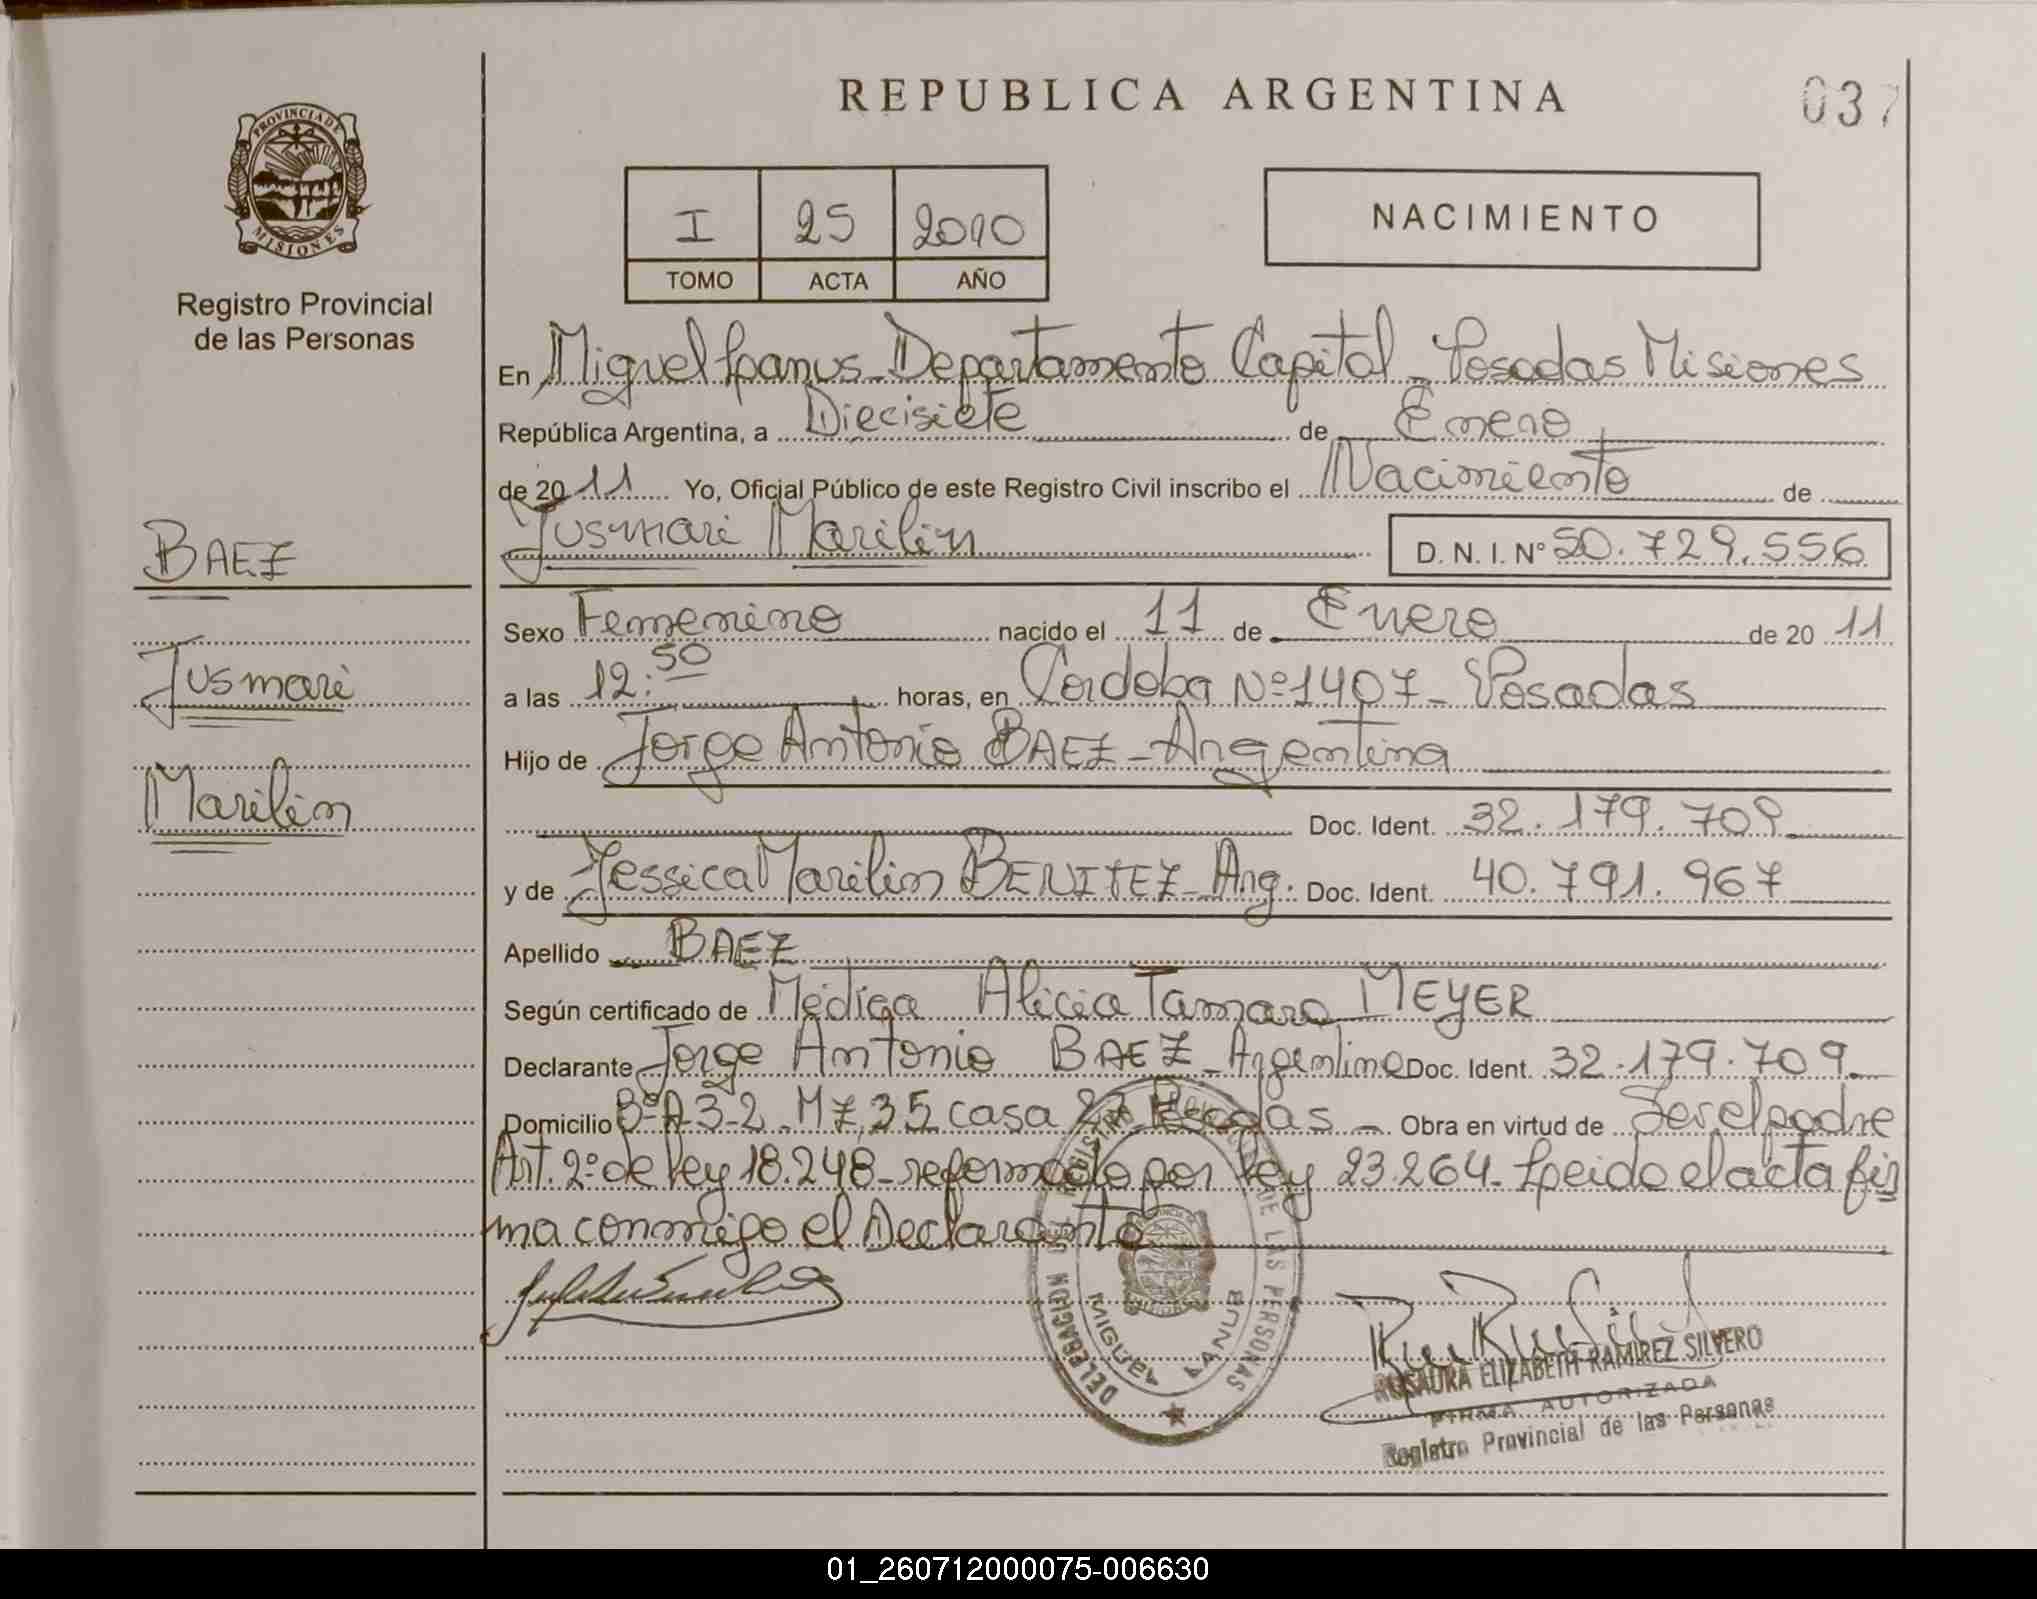 REPUBLICA ARGENTINA
037
PROVINCIA DE
MISIONES
Registro Provincial
de las Personas
I 25 2010
TOMO ACTA AÑO
NACIMIENTO
En Miguel Lanus - Departamento Capital - Posadas Misiones
República Argentina, a Diecisiete de Enero
de 2011 Yo, Oficial Público de este Registro Civil inscribo el Nacimiento de
Jusmari Marilin D. N. I. Nº 50.729.556
BAEZ
Jusmari
Marilin
Sexo Femenino nacido el 11 de Enero de 2011
a las 12:50 horas, en Córdoba Nº 1407 - Posadas
Hijo de Jorge Antonio BAEZ - Argentina
Doc. Ident. 32.179.709
y de Jessica Marilin BENITEZ - Arg. Doc. Ident. 40.791.967
Apellido BAEZ
Según certificado de Médica Alicia Tamara MEYER
Declarante Jorge Antonio BAEZ - Argentino Doc. Ident. 32.179.709
Domicilio Bº A 3-2 MZ 35 casa Posadas - Obra en virtud de Ser el padre
Art. 2º de ley 18.248 - reformado por ley 23.264 - Leido el acta fir
ma conmigo el Declarante
DELEGACIÓN DEL REGISTRO DE LAS PERSONAS
MIGUEL LANUS
ROSAURA ELIZABETH RAMIREZ SILVERO
FIRMA AUTORIZADA
Registro Provincial de las Personas
01_260712000075-006630